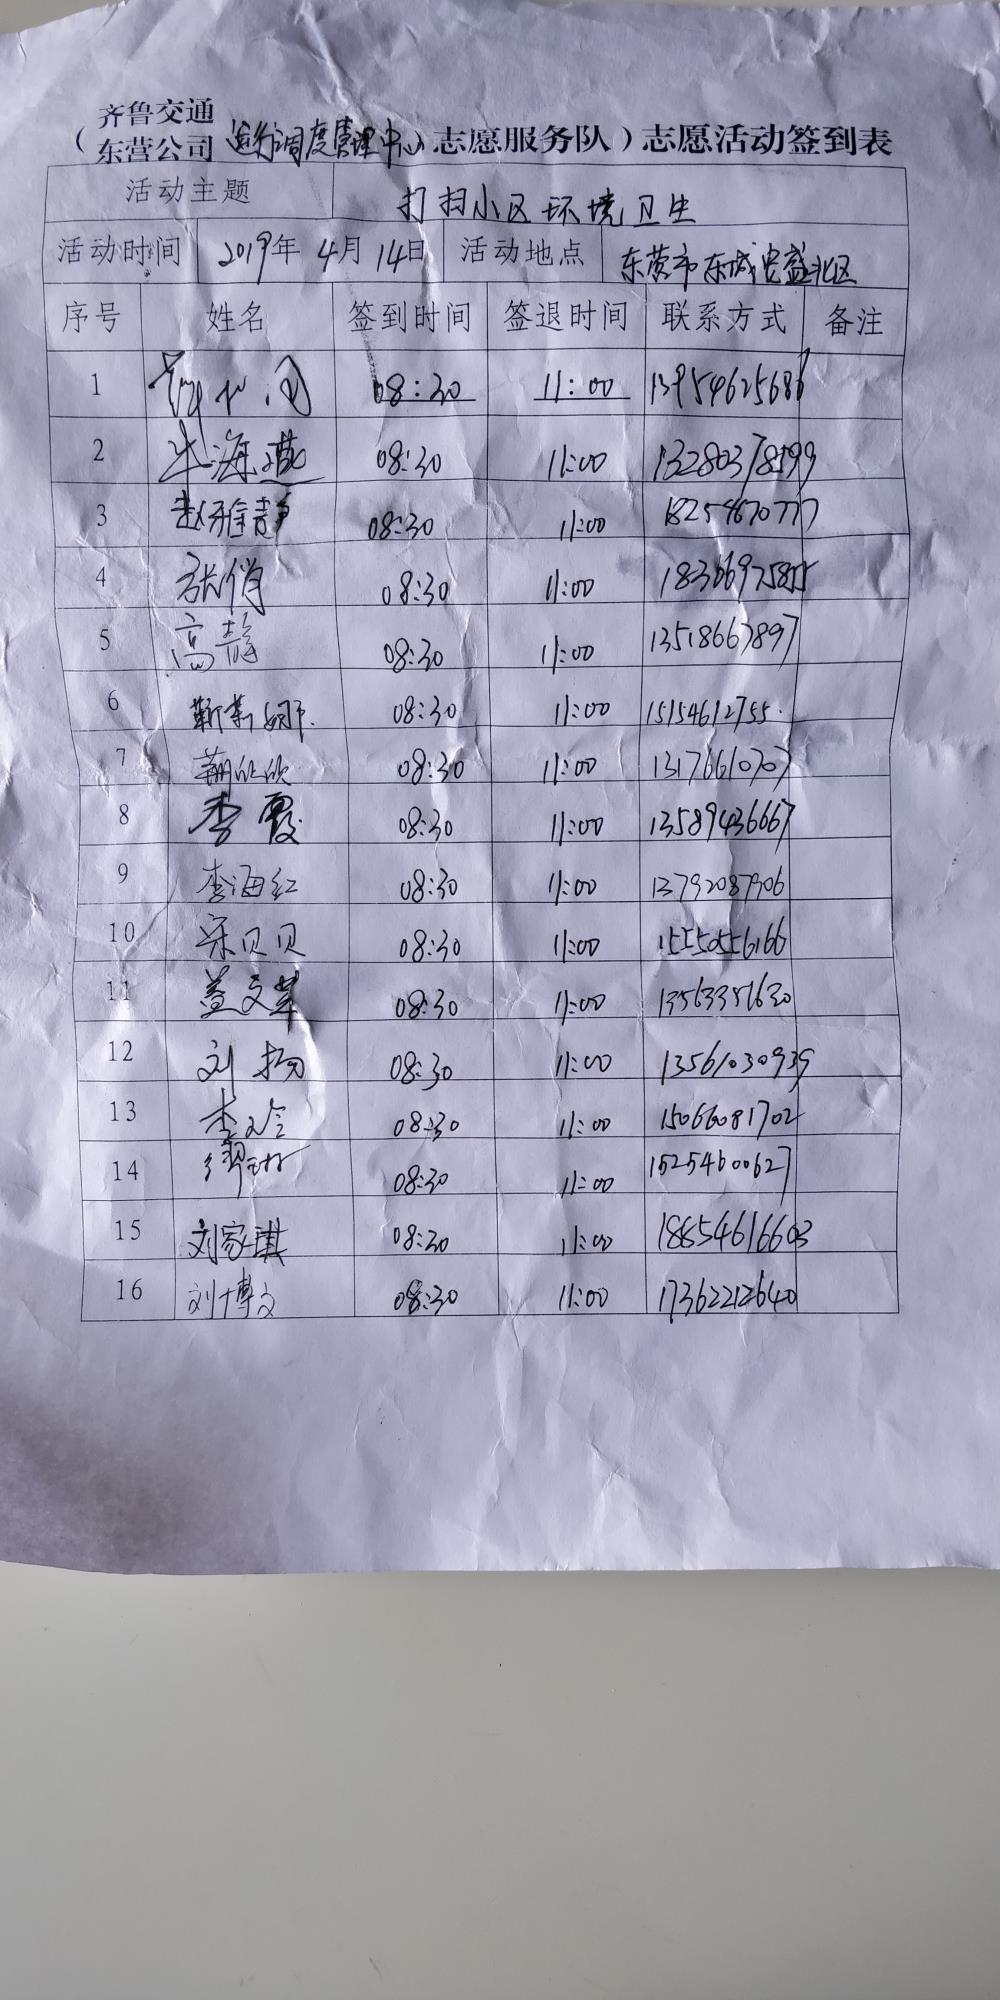 齐鲁交通
（东营公司 运行调度管理中心 志愿服务队）志愿活动签到表
活动主题 打扫小区环境卫生
活动时间 2019年 4月 14日 活动地点 东营市东城安盛北区
序号 姓名 签到时间 签退时间 联系方式 备注
1 08:30 11:00 13954625686
2 牛海燕 08:30 11:00 13280378599
3 赵雅静 08:30 11:00 18254670777
4 张俏 08:30 11:00 18366975855
5 高静 08:30 11:00 13518667897
6 靳莉娜 08:30 11:00 15154612755
7 08:30 11:00 13176610707
8 李霞 08:30 11:00 13589436667
9 李海红 08:30 11:00 13792087906
10 宋贝贝 08:30 11:00 15550556166
11 盖文苹 08:30 11:00 13563351630
12 刘扬 08:30 11:00 13561030939
13 李玲 08:30 11:00 15066081702
14 08:30 11:00 15254600627
15 刘家琪 08:30 11:00 18654616603
16 刘博文 08:30 11:00 17362212640